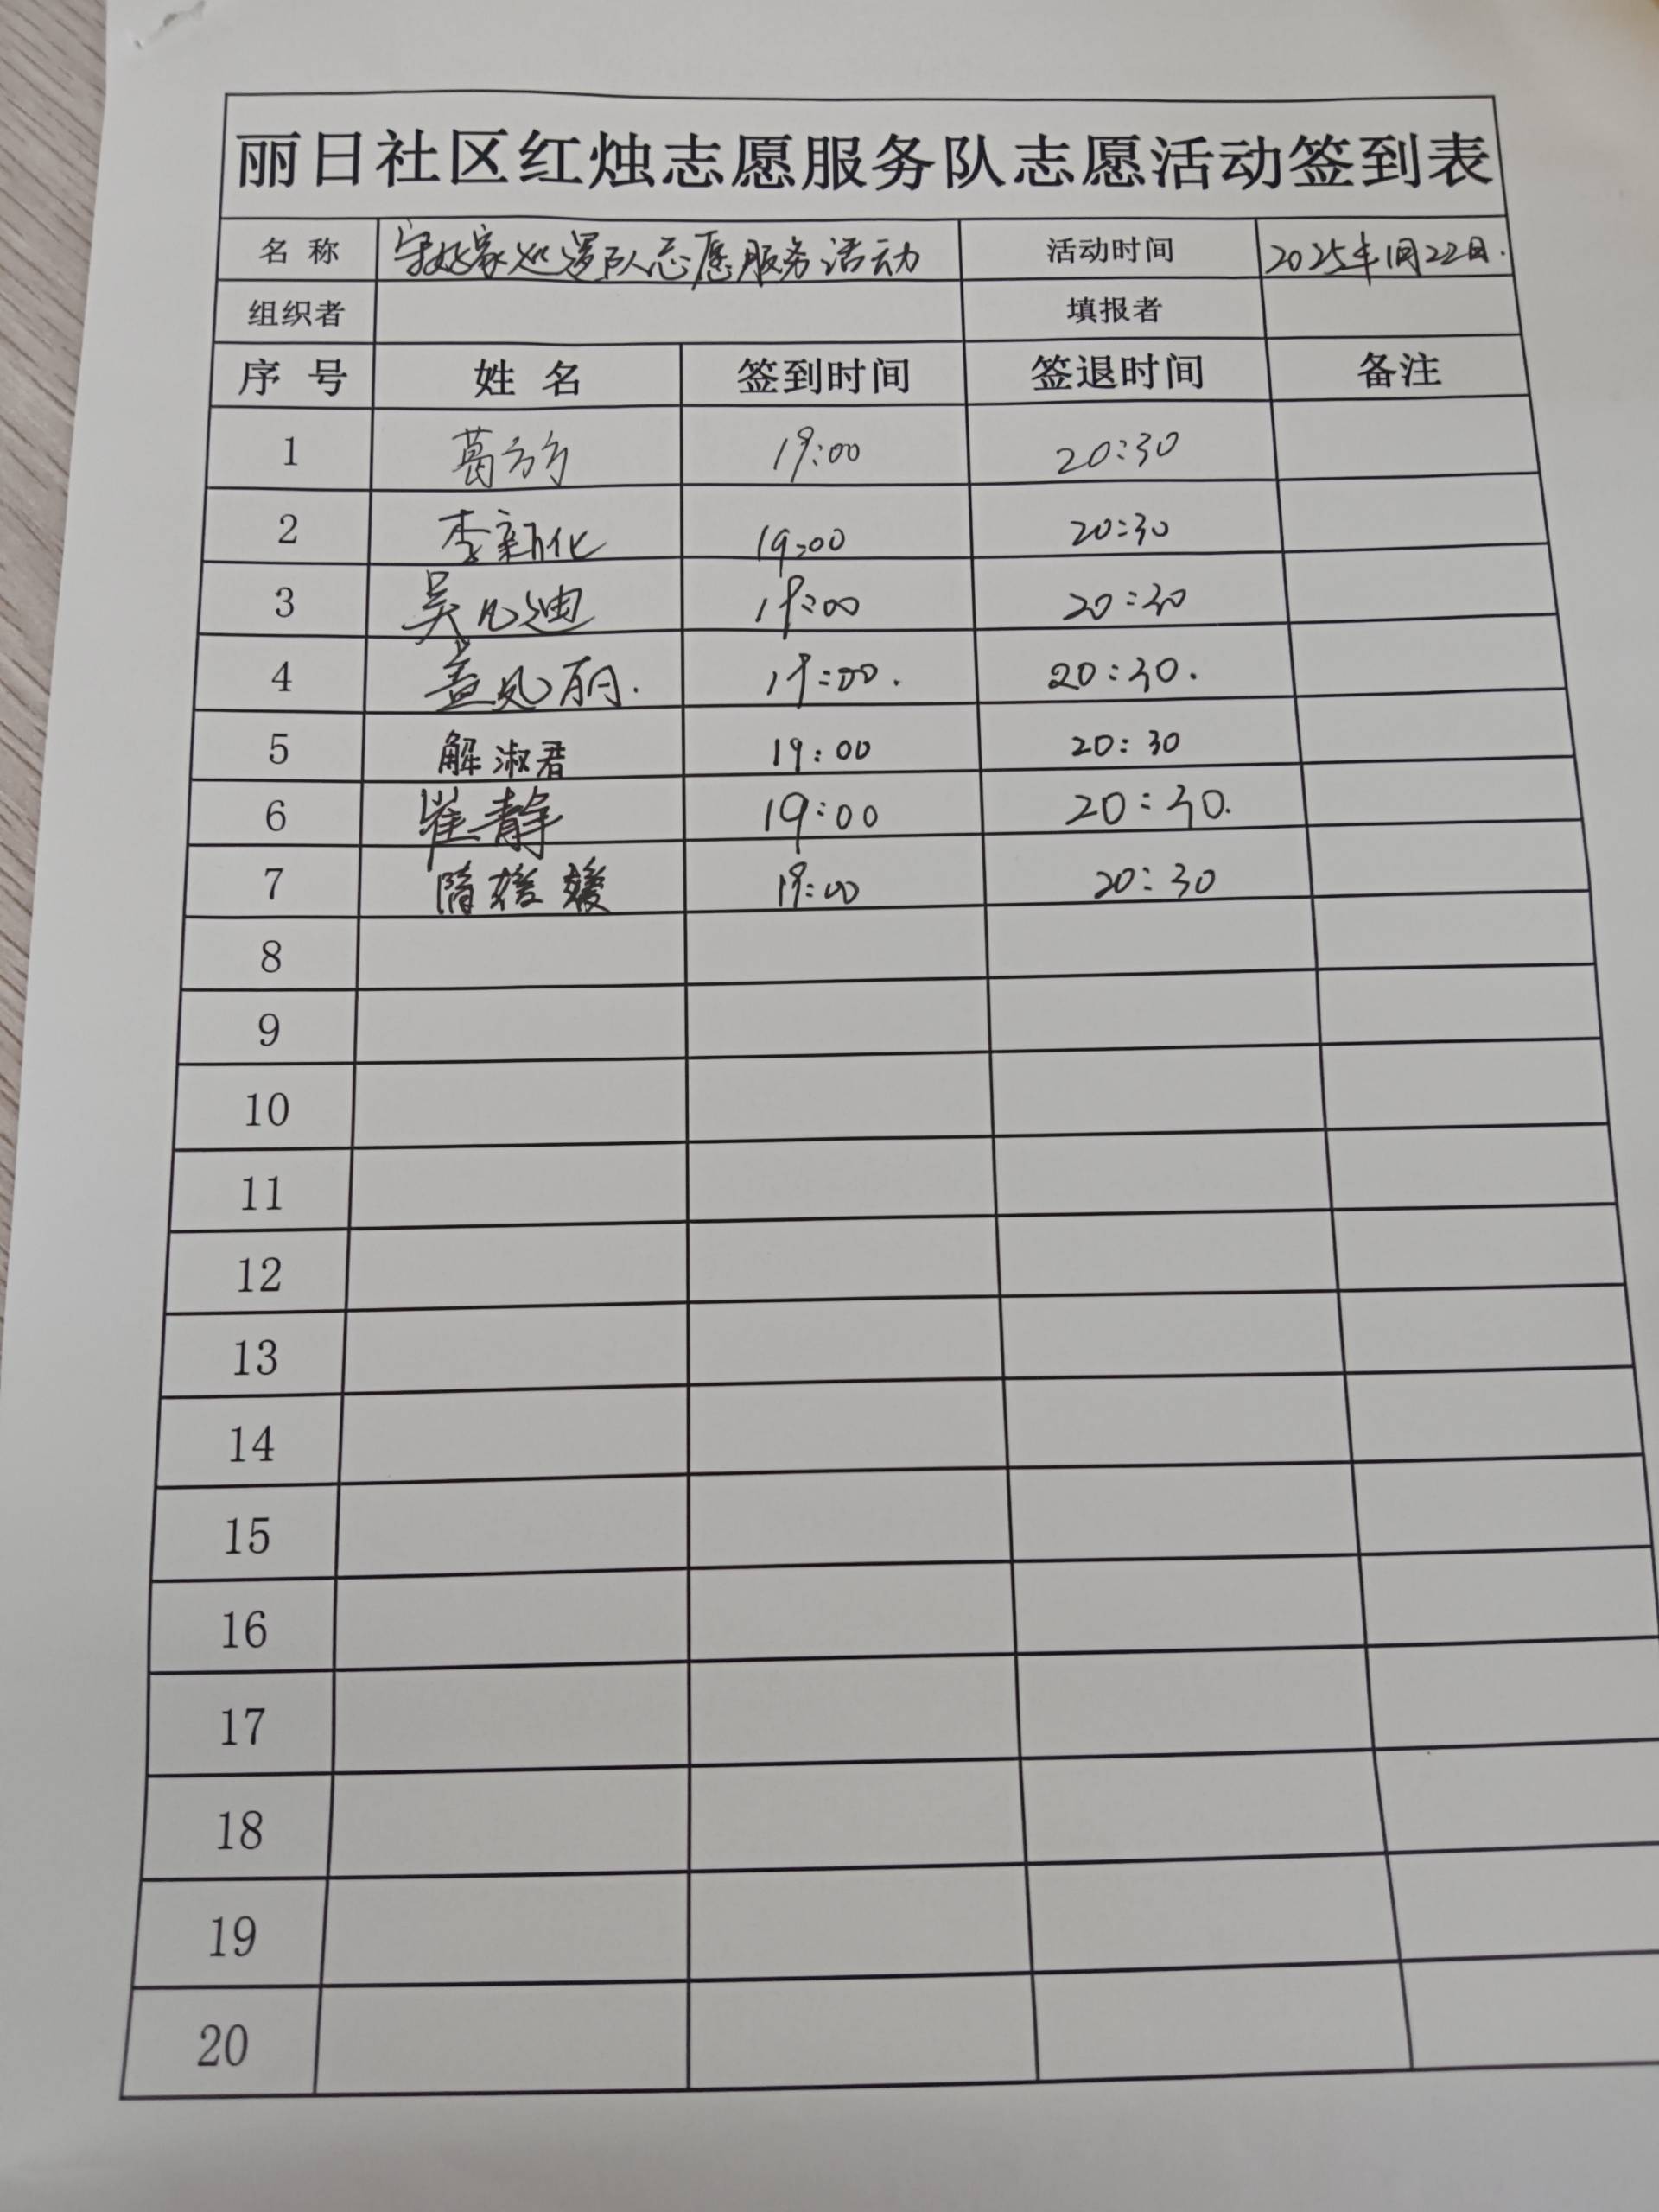 丽日社区红烛志愿服务队志愿活动签到表
名 称 志愿服务活动 活动时间 2025年1月22日.
组织者 填报者
序 号 姓 名 签到时间 签退时间 备注
1 葛方方 19:00 20:30
2 李新化 19:00 20:30
3 吴凡迪 19:00 20:30
4 孟凤丽. 19:00. 20:30.
5 解淑君 19:00 20:30
6 崔静 19:00 20:30.
7 隋媛媛 19:00 20:30
8
9
10
11
12
13
14
15
16
17
18
19
20